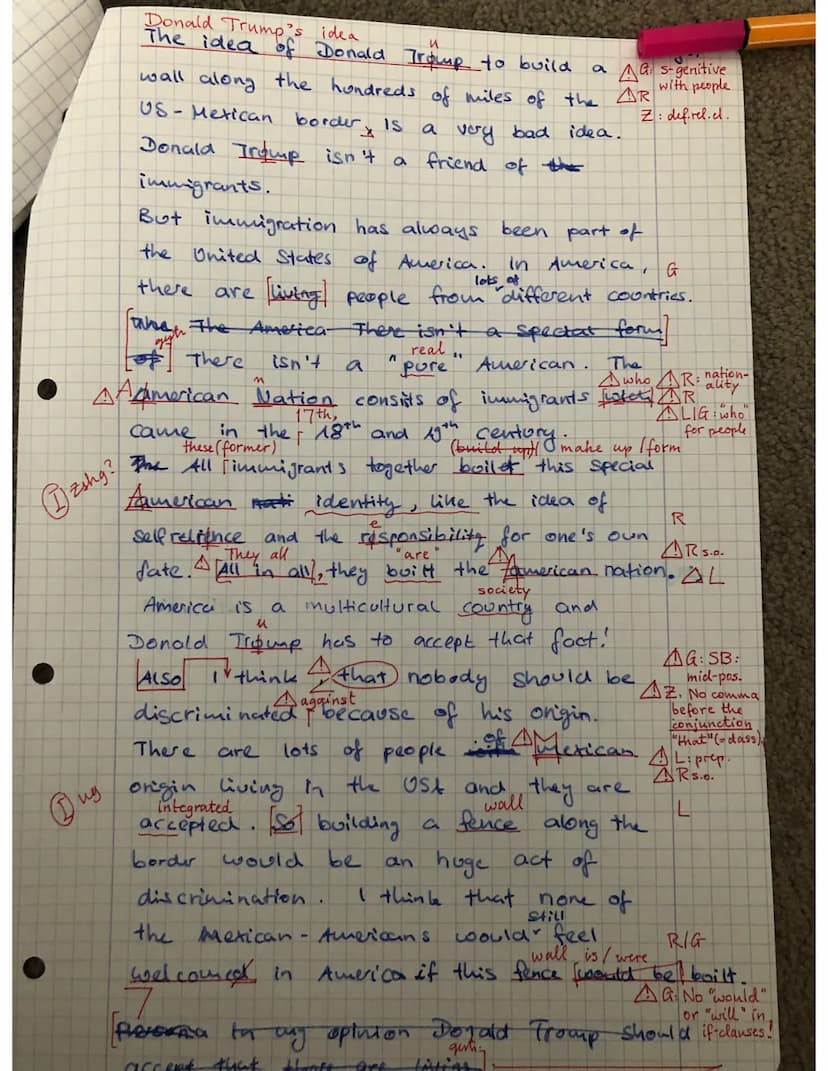 Donald Trump's idea
The idea of Donald Tromp to build a
u
⚠ G: s-genitive
with people
wall along the hundreds of miles of the
⚠ R
Z: def.rel.cl.
US-Mexican border, is a very bad idea.
Donald Tromp isn't a friend of the
immigrants.
But immigration has always been part of
the United States of America. In America,
G
lots of
there are [living] people from different countries.
The America There isn't a spectat form]
gush
real
[of] There isn't a "pure" American. The
n
⚠ who
⚠ R: nation-
ality
⚠ American Nation consits of immigrants
⚠ R
17th,
⚠ L/G: "who"
for people
came in the 18th and 19th century.
these (former)
(build up) make up / form
I zshg?
The All immigrants together boilt this special
American nati identity, like the idea of
R
e
selfrelience and the rosponsibility for one's own
They all
"are"
⚠ R s.o.
fate. ⚠ [All in all], they built the American nation.
⚠ L
society
America is a multicultural country and
u
Donald Tromp has to accept that fact!
⚠ G: SB:
mid-pos.
[Also] I think, that nobody should be
⚠ Z. No comma
before the
conjunction
"that" (= dass)
⚠ against
discriminated because of his origin.
of
There are lots of people with Mexican
⚠ L: prep.
⚠ R s.o.
origin living in the USA and they are
I ug
integrated
wall
L
accepted. [So] building a fence along the
border would be an huge act of
discrimination. I think that none of
still
the Mexican-Americans would feel
R/G
wall
is/were
welcomed in America if this fence [would be] built.
⚠ G: No "would"
or "will" in
if-clauses!
In my opinion Donald Tromp should
gush
accept that there are living